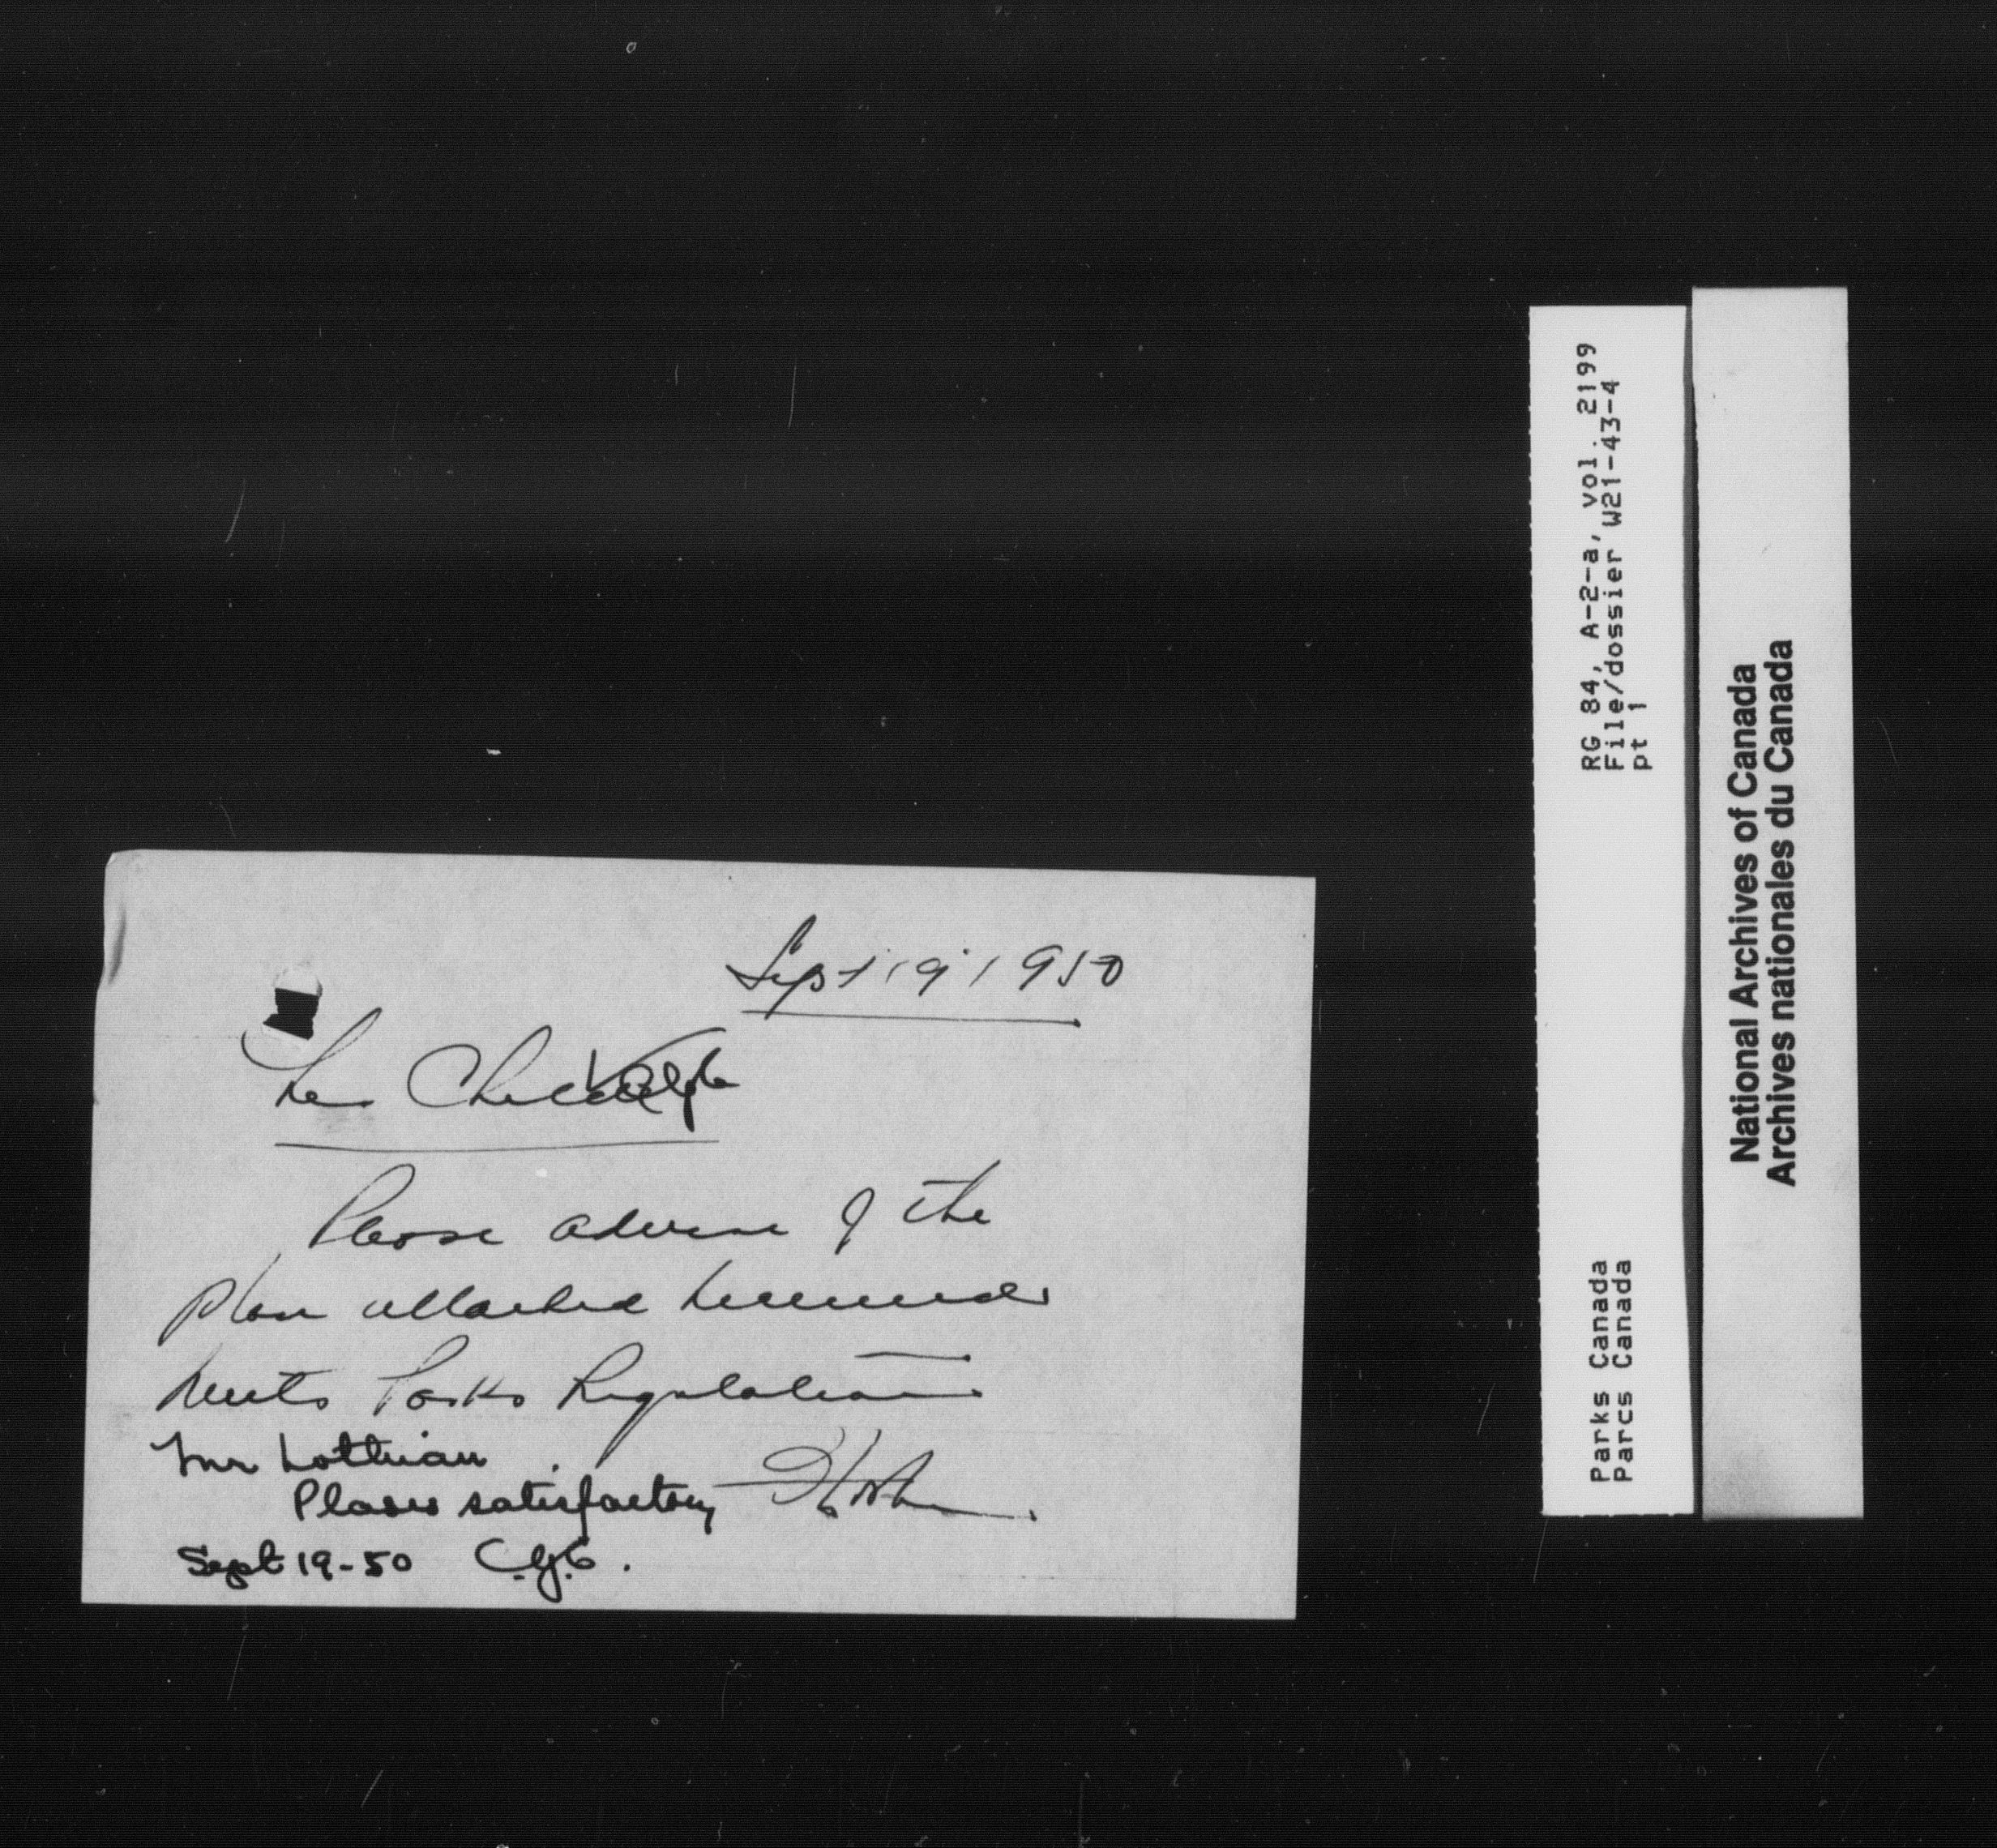 Sept 19, 1950
Mr
Please advise if the
plan attached hereunder
meets Parks Regulations
Mr Lothian.
Plans satisfactory
Sept 19-50 C.G.C.
RG 84, A-2-a, vol. 2199
File/dossier W21-43-4
pt 1
Parks Canada
Parcs Canada
National Archives of Canada
Archives nationales du Canada